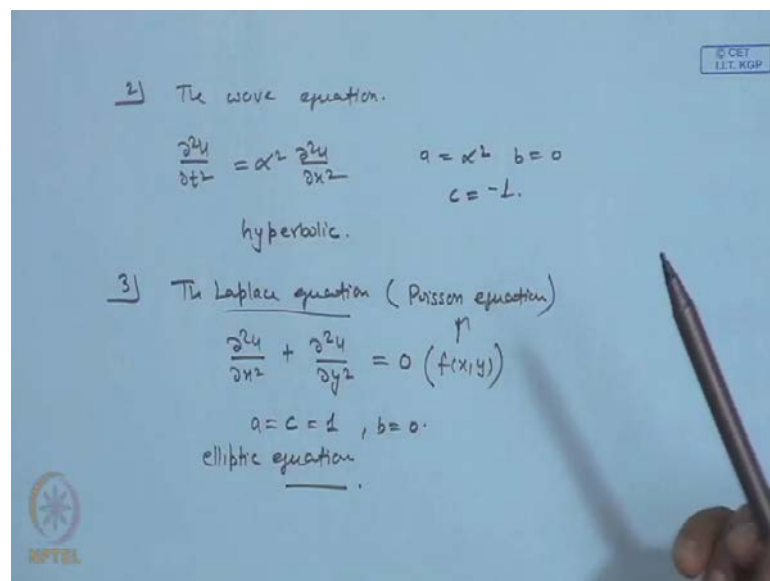 © CET
I.I.T. KGP
2) The wave equation.
∂²u/∂t² = α² ∂²u/∂x² a = α² b = 0
c = -1.
hyperbolic.
3) The Laplace equation (Poisson equation)
∂²u/∂x² + ∂²u/∂y² = 0 (f(x,y))
a = c = 1 , b = 0.
elliptic equation.
NPTEL